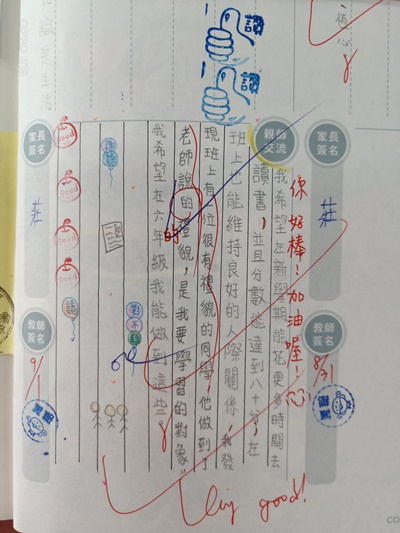 恆心
讚
讚
家長
簽名
莊
教師
簽名
8/31
你好棒！加油喔！
親師
交流
我希望在新學期能花更多時間去
讀書，並且分數能達到八十分，在
班上也能維持良好的人際關係，我發
現班上有一位很有禮貌的同學，他做到了
老師說的禮貌，是我要學習的對象
的
我希望在六年級我能做到這些。
對不起
good!
Good
Good
Good
Good
家長
簽名
莊
教師
簽名
9/1